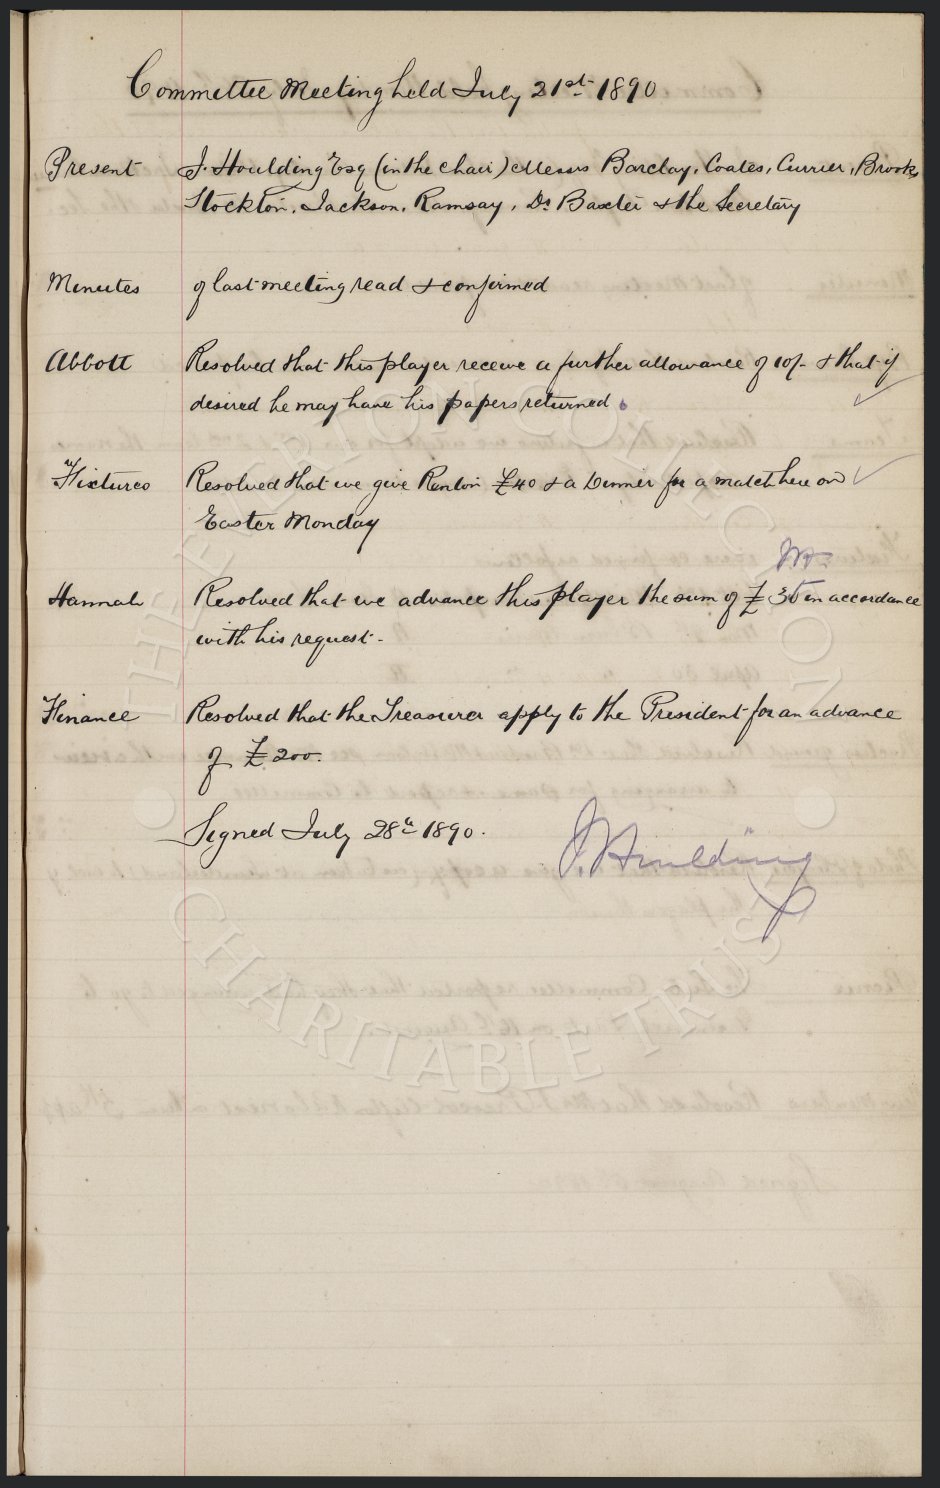 Committee Meeting held July 21st 1890
Present J. Houlding Esq (in the chair) Messrs Barclay, Coates, Currier, Brooks,
Stockton, Jackson, Ramsay, Dr Baxter & the Secretary
Minutes of last meeting read & confirmed
Abbott Resolved that this player receive a further allowance of 10/- & that if
desired he may have his papers returned.
Fixtures Resolved that we give Renton £40 & a Dinner for a match here on
Easter Monday
Hannah Resolved that we advance this player the sum of £ in accordance
with his request-
Finance Resolved that the Treasurer apply to the President for an advance
of £200.
Signed July 28th 1890.
J. Houlding
THE EVERTON COLLECTION
CHARITABLE TRUST